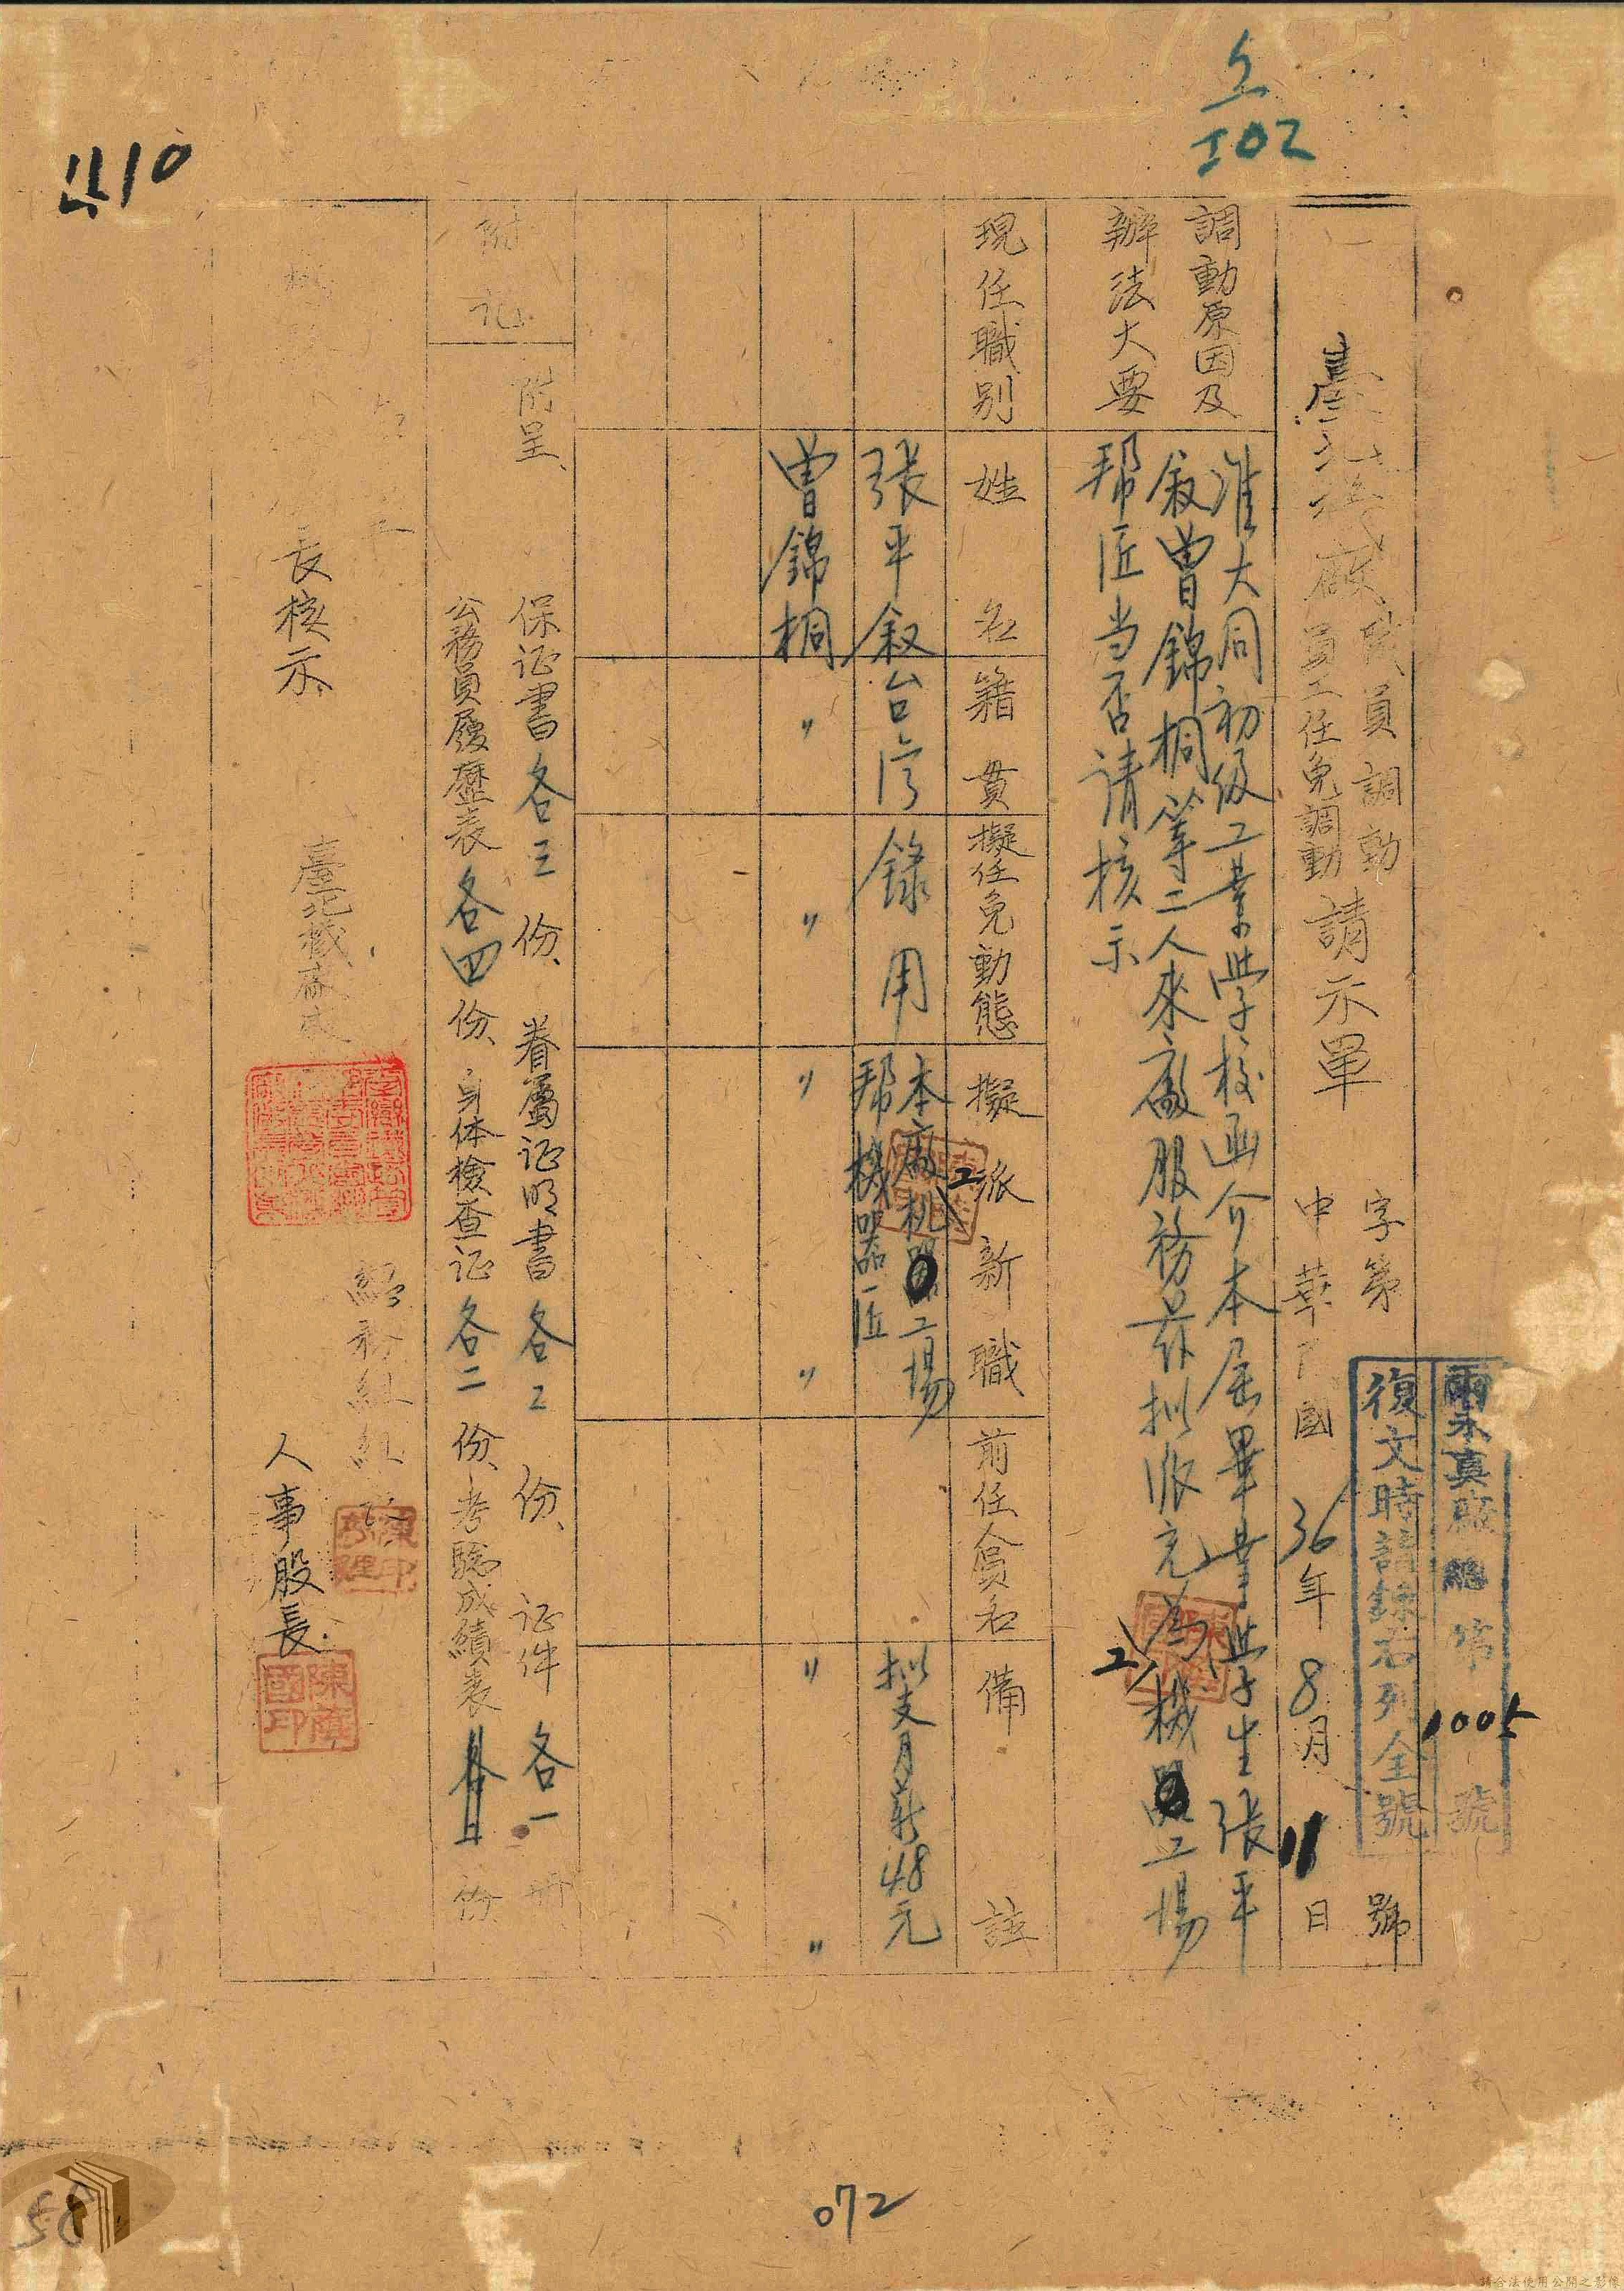 102
1110
兩永真廠總第1005號
復文時請錄右列全號
字第 號
中華民國36年8月11日
臺北機廠
職員調動
員工任免調動
請示單
調動原因及
辦法大要
準大同初級工業學校函介本屆畢業學生張平
叙曾錦桐等二人來廠服務茲拟派充為機工場
帮匠当否请核示
現任職別
姓名
籍貫
擬任免動態
擬派新職
前任人員和
備註
張平叙
台湾
錄用
本廠機工場
帮機器匠
拟支月薪48元
曾錦桐
〃
〃
〃
〃
〃
〃
附記
附呈
保证書各三份、眷屬证明書各2份、证件各一冊
公務員履歷表各四份、身体檢查证各二份、考驗成績表 份
長核示
臺北機廠廠長
組長
人事股長
陳印
072
58
請合法使用公開之影像